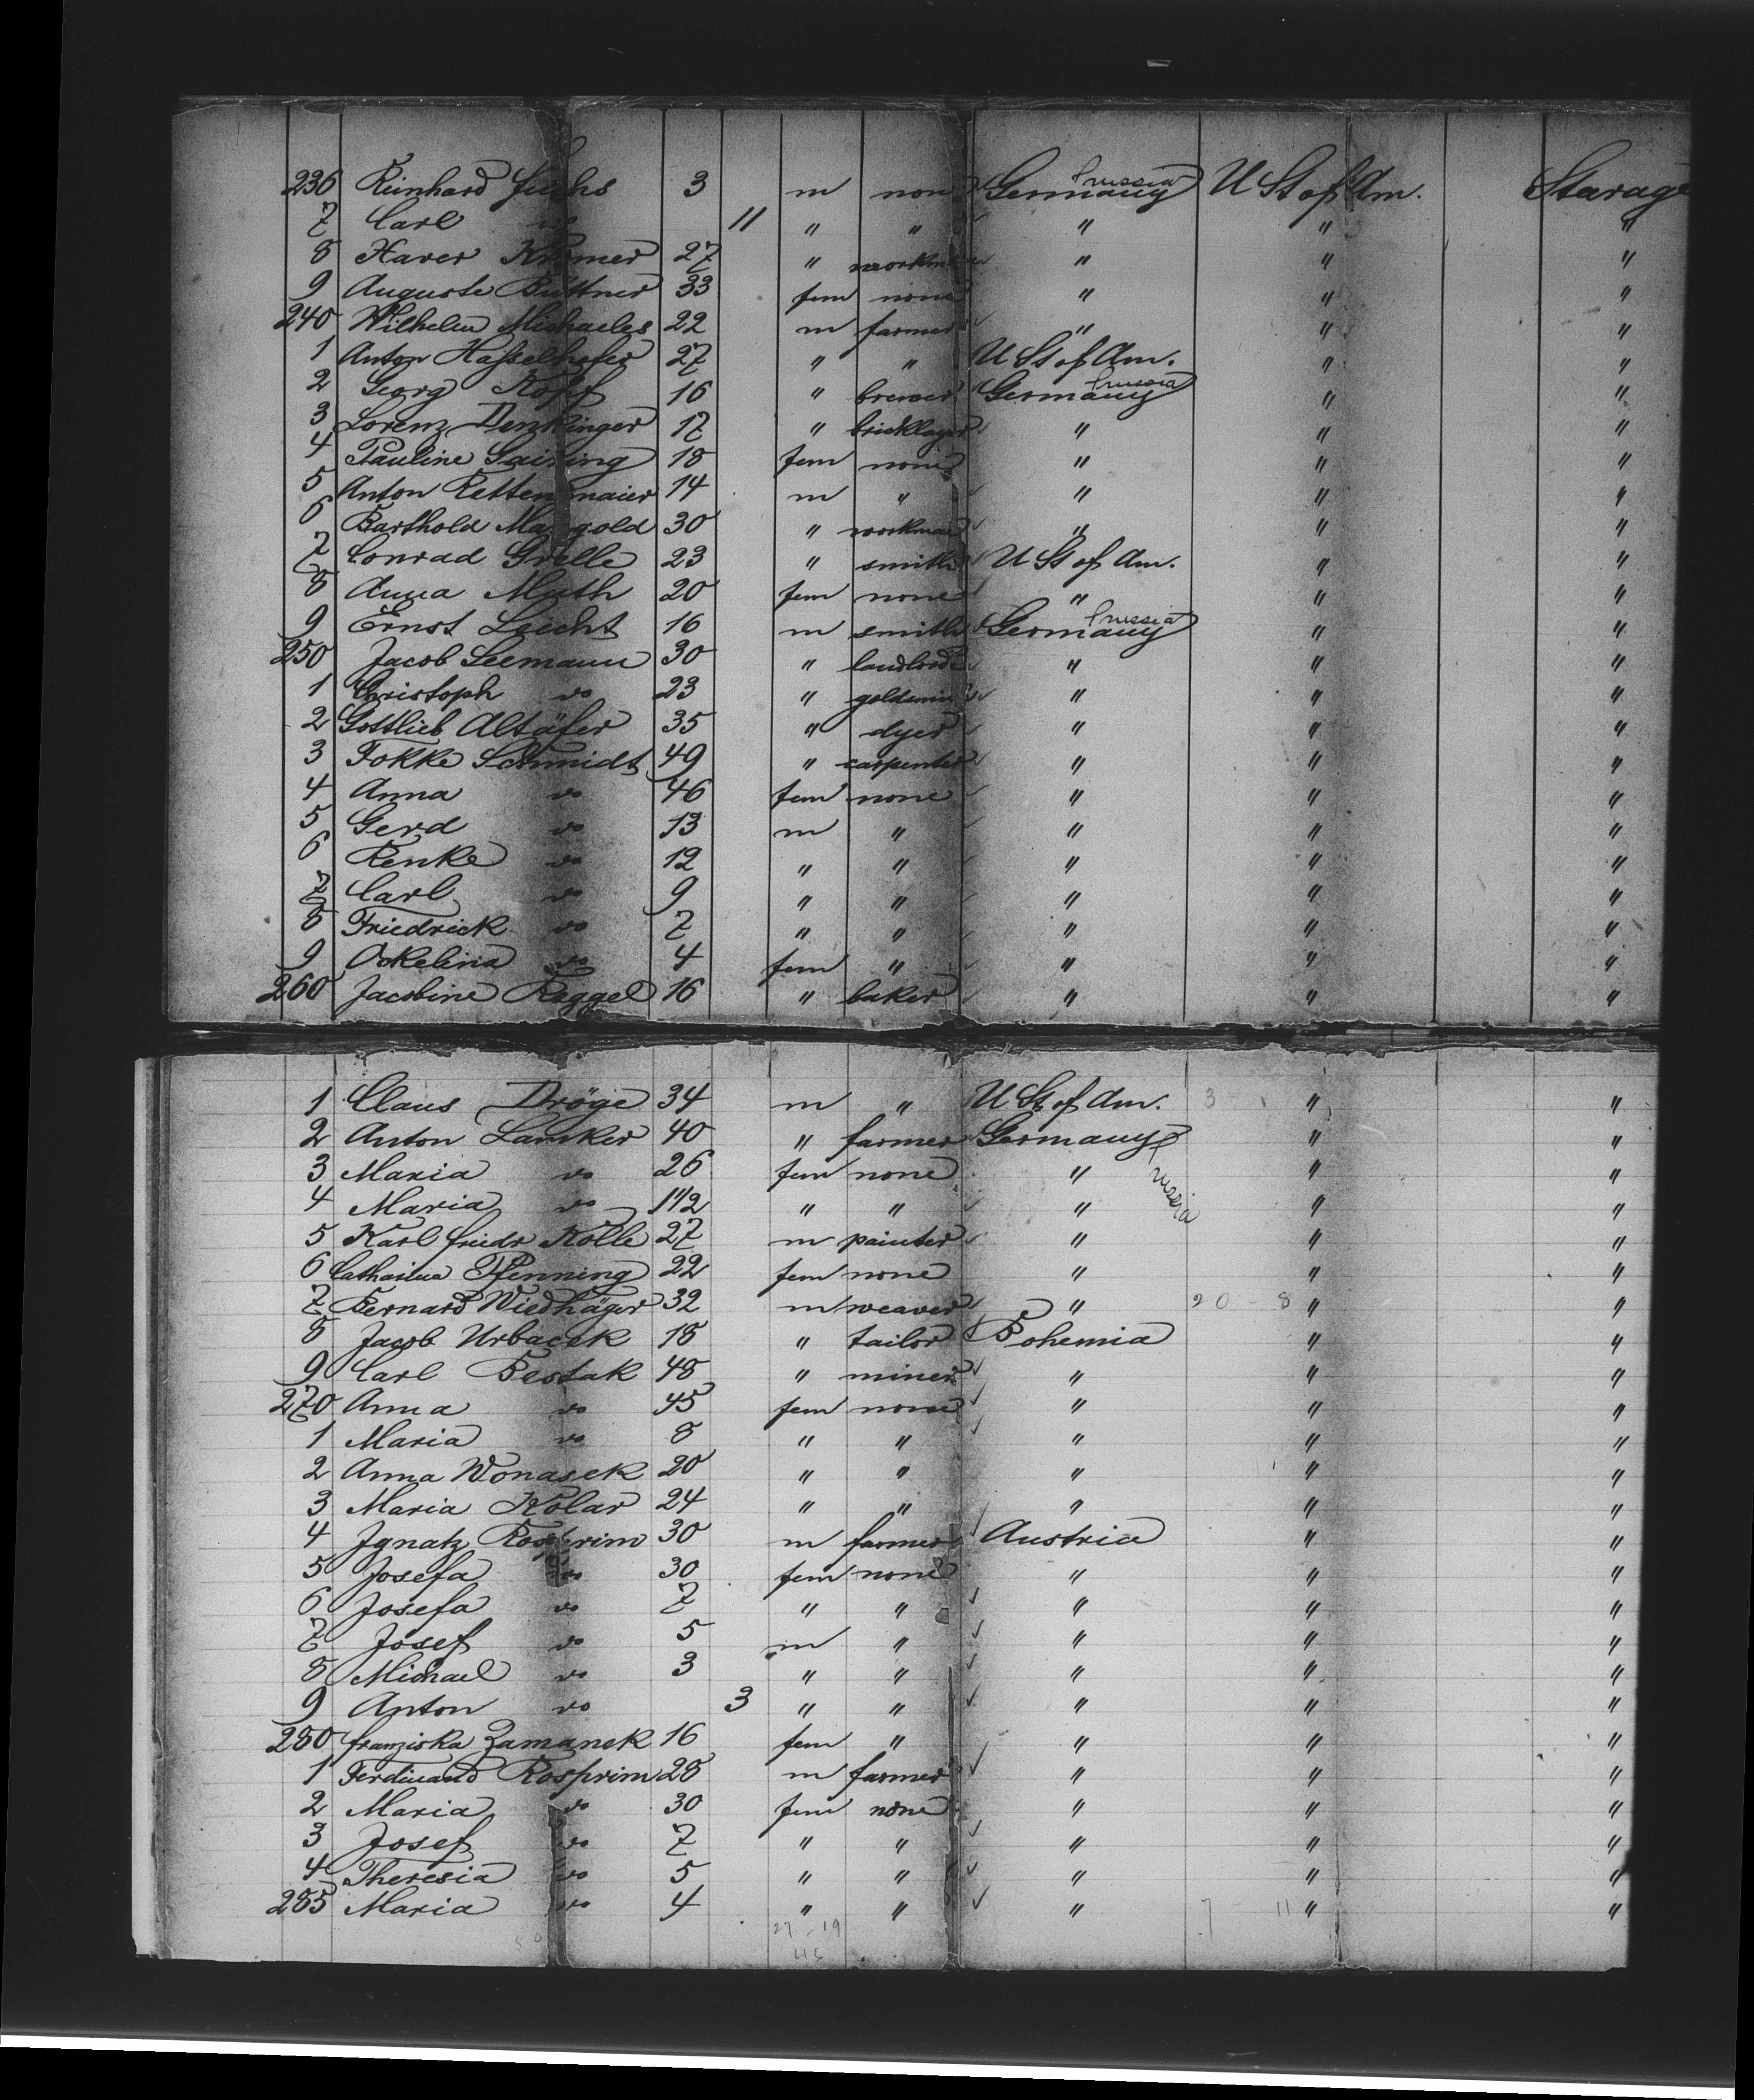 236 Reinhard Fuchs 3 m non Germany Prussia U St of Am. Starage
7 Carl do 11 " " " " "
8 Xaver Kramer 27 " workman " " "
9 Auguste Büttner 33 fem none " " "
240 Wilhelm Michaeles 22 m farmer " " "
1 Anton Hasselhofer 27 " " U St of Am. " "
2 Georg Kopf 16 " brewer Germany Prussia " "
3 Lorenz Denzlinger 17 " bricklayer " " "
4 Pauline 18 fem none " " "
5 Anton Rettenmaier 14 m " " " "
6 Barthold Mangold 30 " workman " " "
7 Conrad Grelle 23 " smith U St of Am. " "
8 Anna Muth 20 fem none " " "
9 Ernst Leicht 16 m smith Germany Prussia " "
250 Jacob Seemann 30 " landlord " " "
1 Christoph do 23 " goldsmi " " "
2 Gottlieb Altäfer 35 " dyer " " "
3 Fokke Schmidt 49 " carpenter " " "
4 Anna do 46 fem none " " "
5 Gerd do 13 m " " " "
6 Renke do 12 " " " " "
7 Carl do 9 " " " " "
8 Friedrick do 7 " " " " "
9 Ockelina do 4 fem " " " "
260 Jacobine Roggel 16 " baker " " "
1 Claus Dröge 34 m " U St of Am. 3 " "
2 Anton Lamker 40 " farmer Germany " "
3 Maria do 26 fem none " Prussia " "
4 Maria do 1 1/2 " " " " "
5 Karl Friedr Kölle 27 m painter " " "
6 Catharina Pfenning 22 fem none " " "
7 Bernard Wiedhäger 32 m weaver " 20 - 8 " "
8 Jacob Urbacek 18 " tailor Bohemia " "
9 Carl Bestak 48 " miner " " "
270 Anna do 45 fem none " " "
1 Maria do 8 " " " " "
2 Anna Wonasek 20 " " " " "
3 Maria Kolar 24 " " " " "
4 Ignatz Rosprim 30 m farmer Austria " "
5 Josefa do 30 fem none " " "
6 Josefa do 7 " " " " "
7 Josef do 5 m " " " "
8 Michael do 3 " " " " "
9 Anton do 3 " " " " "
280 Franziska Zamanek 16 fem " " " "
1 Ferdinand Rosprim 28 m farmer " " "
2 Maria do 30 fem none " " "
3 Josef do 7 " " " " "
4 Theresia do 5 " " " " "
285 Maria do 4 " " " 7 - 11 " "
27 - 19
46